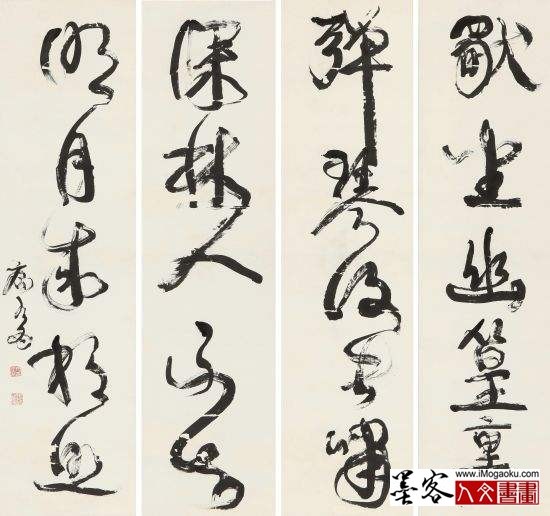 獨坐幽篁裏
彈琴復長嘯
深林人不知
明月來相照
墨客
www.iMogaoku.com
人文書畫